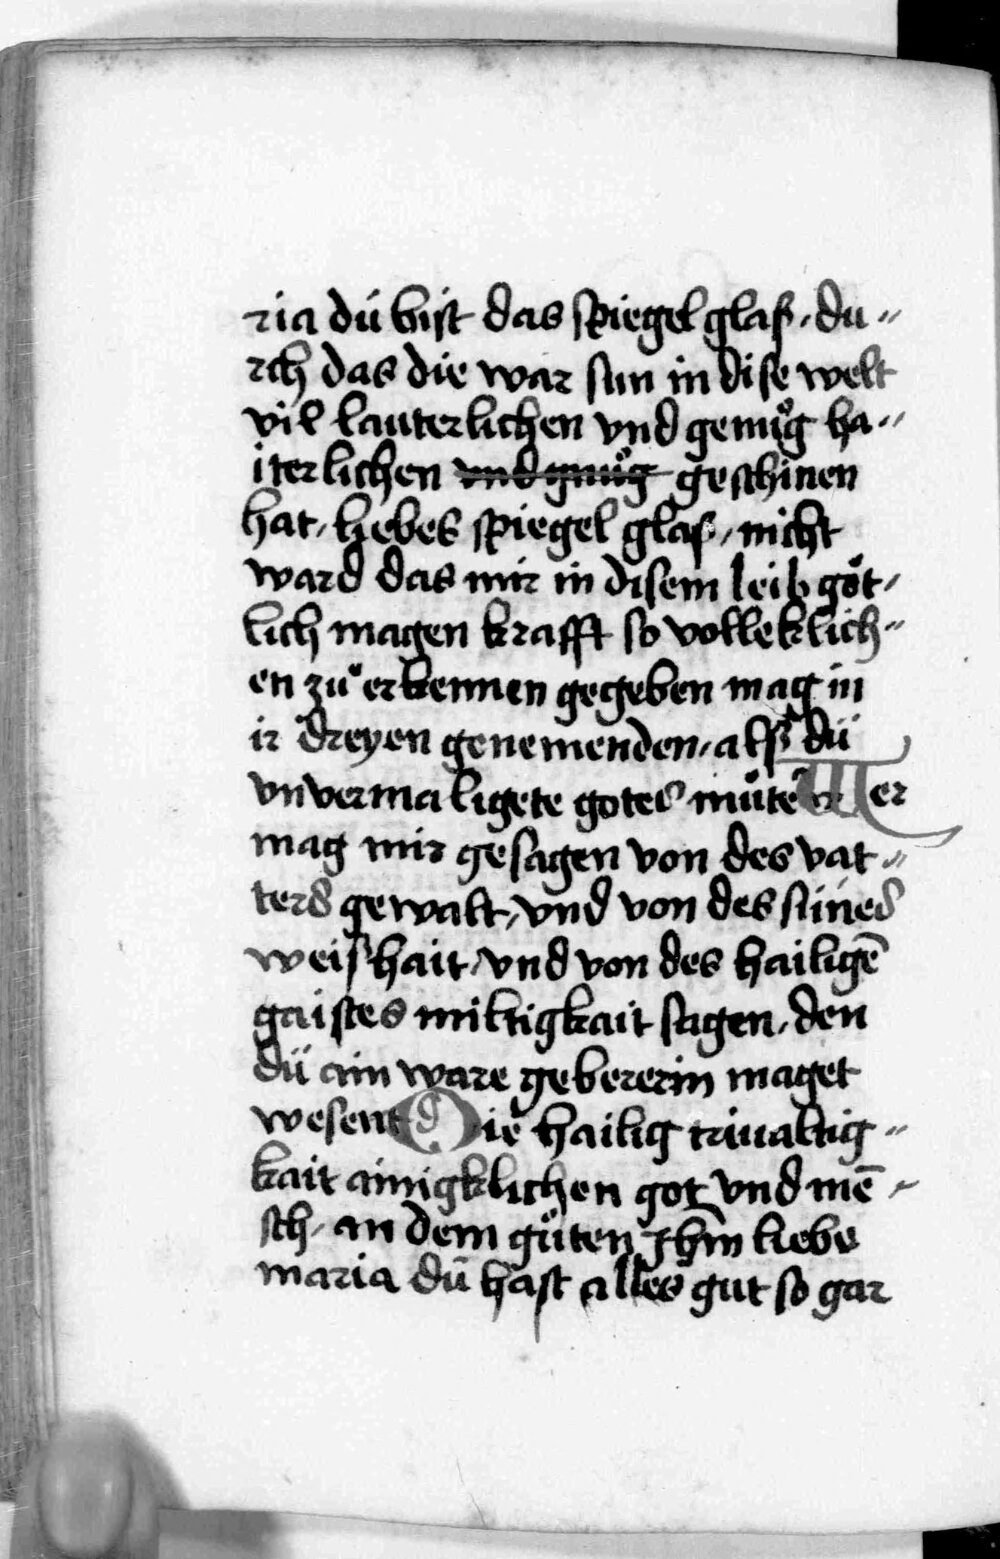 ria dü bist das spiegel glaß, du⸗
rch das die war sun in dise welt
vil lauterlichen vnd genuͦg ha⸗
iterlichen vnd gnuͦg geschinen
hat, liebes spiegel glaß, nicht
ward das mir in disem leib goͤt⸗
lich magen krafft so volleklich⸗
en zuͦ erkennen gegeben mag in
ir dreyen genemenden, alß dü
vnvermaligete gotes muͦtē Wer
mag mir gesagen von des vat⸗
ters gewalt, vnd von des sünes
weißhait, vnd von des hailigē
gaistes miltigkait sagen, den
dü ain ware gebererin maget
wesent Die hailig triualtig⸗
kait ainigklichen got vnd mē⸗
sch, an dem guͦten Jhm liebe
maria dü hast alles gut so gar